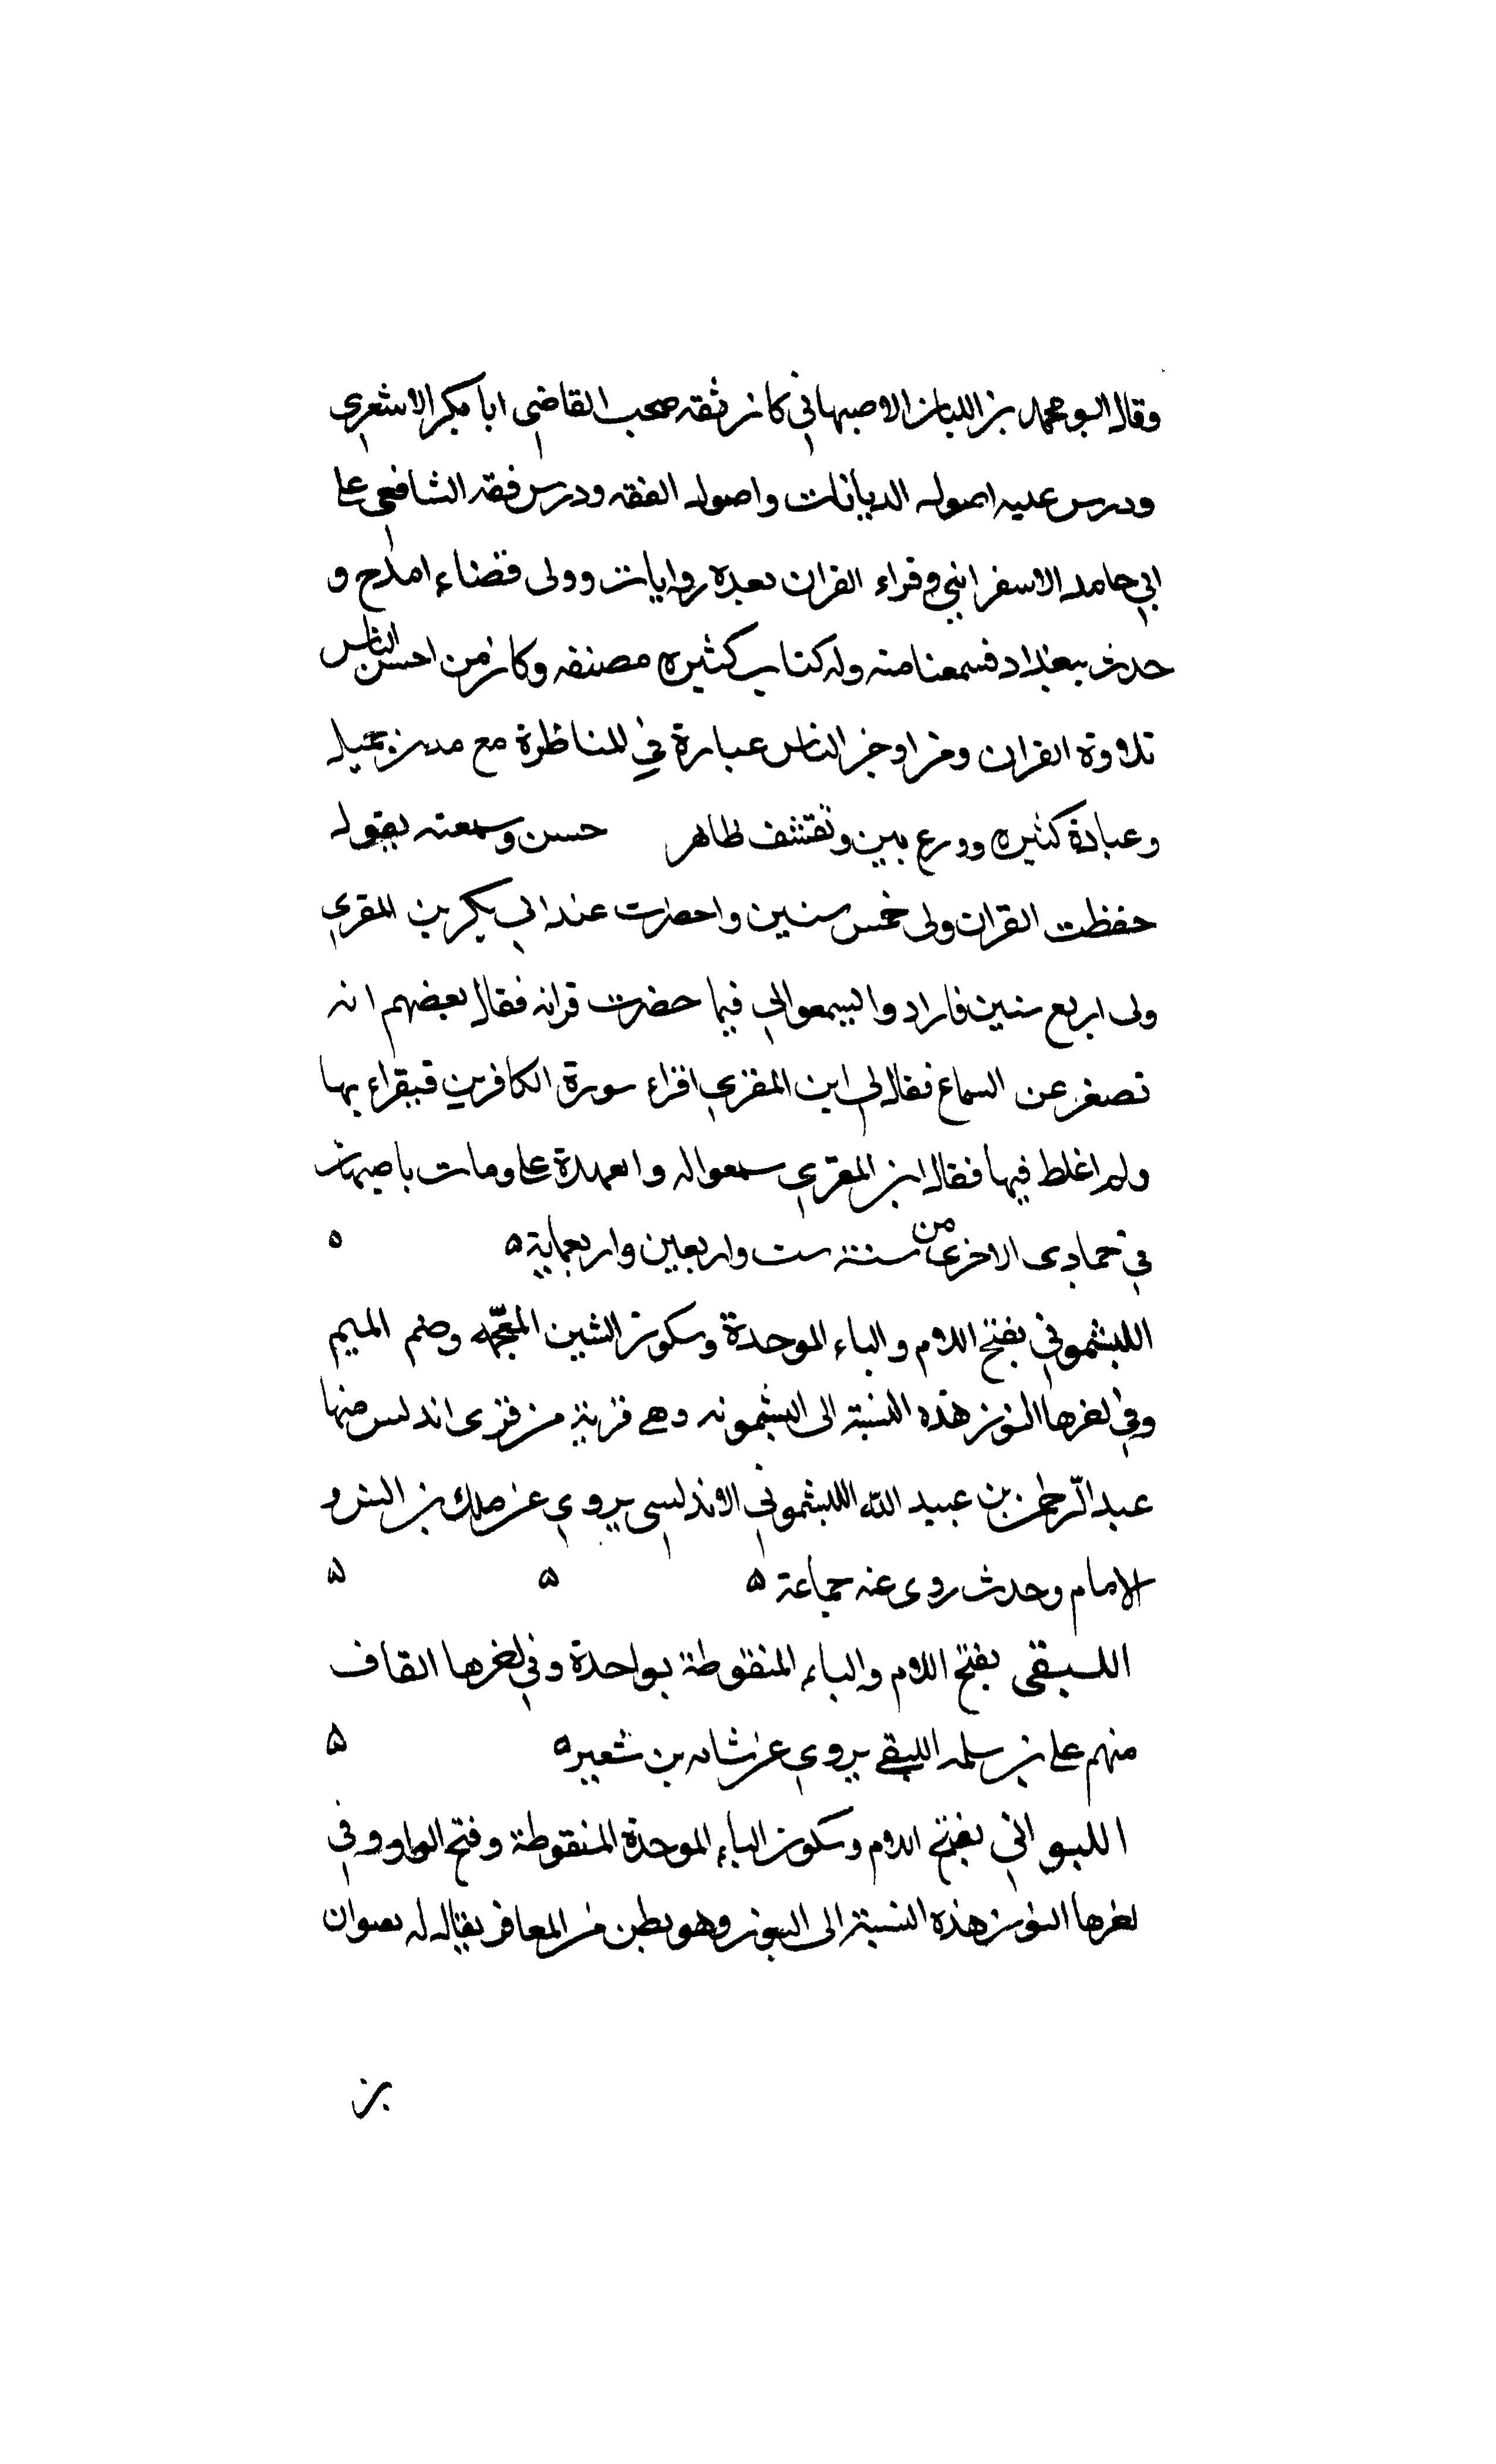 وقال ابو محمد بن اللبان الاصبهاني كان ثقه صحب القاضي ابا بكر الاشعري
ودرس عليه اصول الديانات واصول الفقه ودرس فقه الشافعي على
ابي حامد الاسفرايني وقراء القران بعده روايات وولى قضاء امدح و
حدث ببغداد فسمعنا منه وله كتاب كثيره مصنفه وكان من احسن الناس
تلاوة القران ومن اوجز الناس عبارة في المناظرة مع
وعبادة كثيره وورع بين وتقشف ظاهر حسن وسمعته يقول
حفظت القران ولى خمس سنين واحضرت عند ابي بكر بن المقري
ولى اربع سنين فارادوا ليسمعوالي فيما حضرت قرانه فقال بعضهم انه
تصغر عن السماع فقال لي ابن المقري اقراء سورة الكافرين فيقراء بها
ولم اغلط فيها فقال ابن المقري سمعوا له والعهدة على ومات باصبهان
في جمادى الاخرى من سنة ست واربعين واربعماية ه ه
اللبشموني بفتح اللام والباء الموحدة وسكون الشين المعجمه وضم الميم
وفي اخرها النون هذه النسبة الى لبشمونه وهي قرية من قرى اندلس منها
عبد الرحمن بن عبيد الله اللبشموني الاندلسي يروي عن ملك بن انس و
الامام وحدث روى عنه جماعة ه ه ه
اللبقى بفتح اللام والباء المنقوطة بواحدة وفي اخرها القاف
منهم على بن سلمه اللبقي يروي عن شبابه بن شعير ه ه
اللبواني بفتح اللام وسكون الباء الموحدة المنقوطة وفتح الواو وفي
اخرها النون هذه النسبة الى لبون وهو بطن من المعافر يقال له لبوان
بن